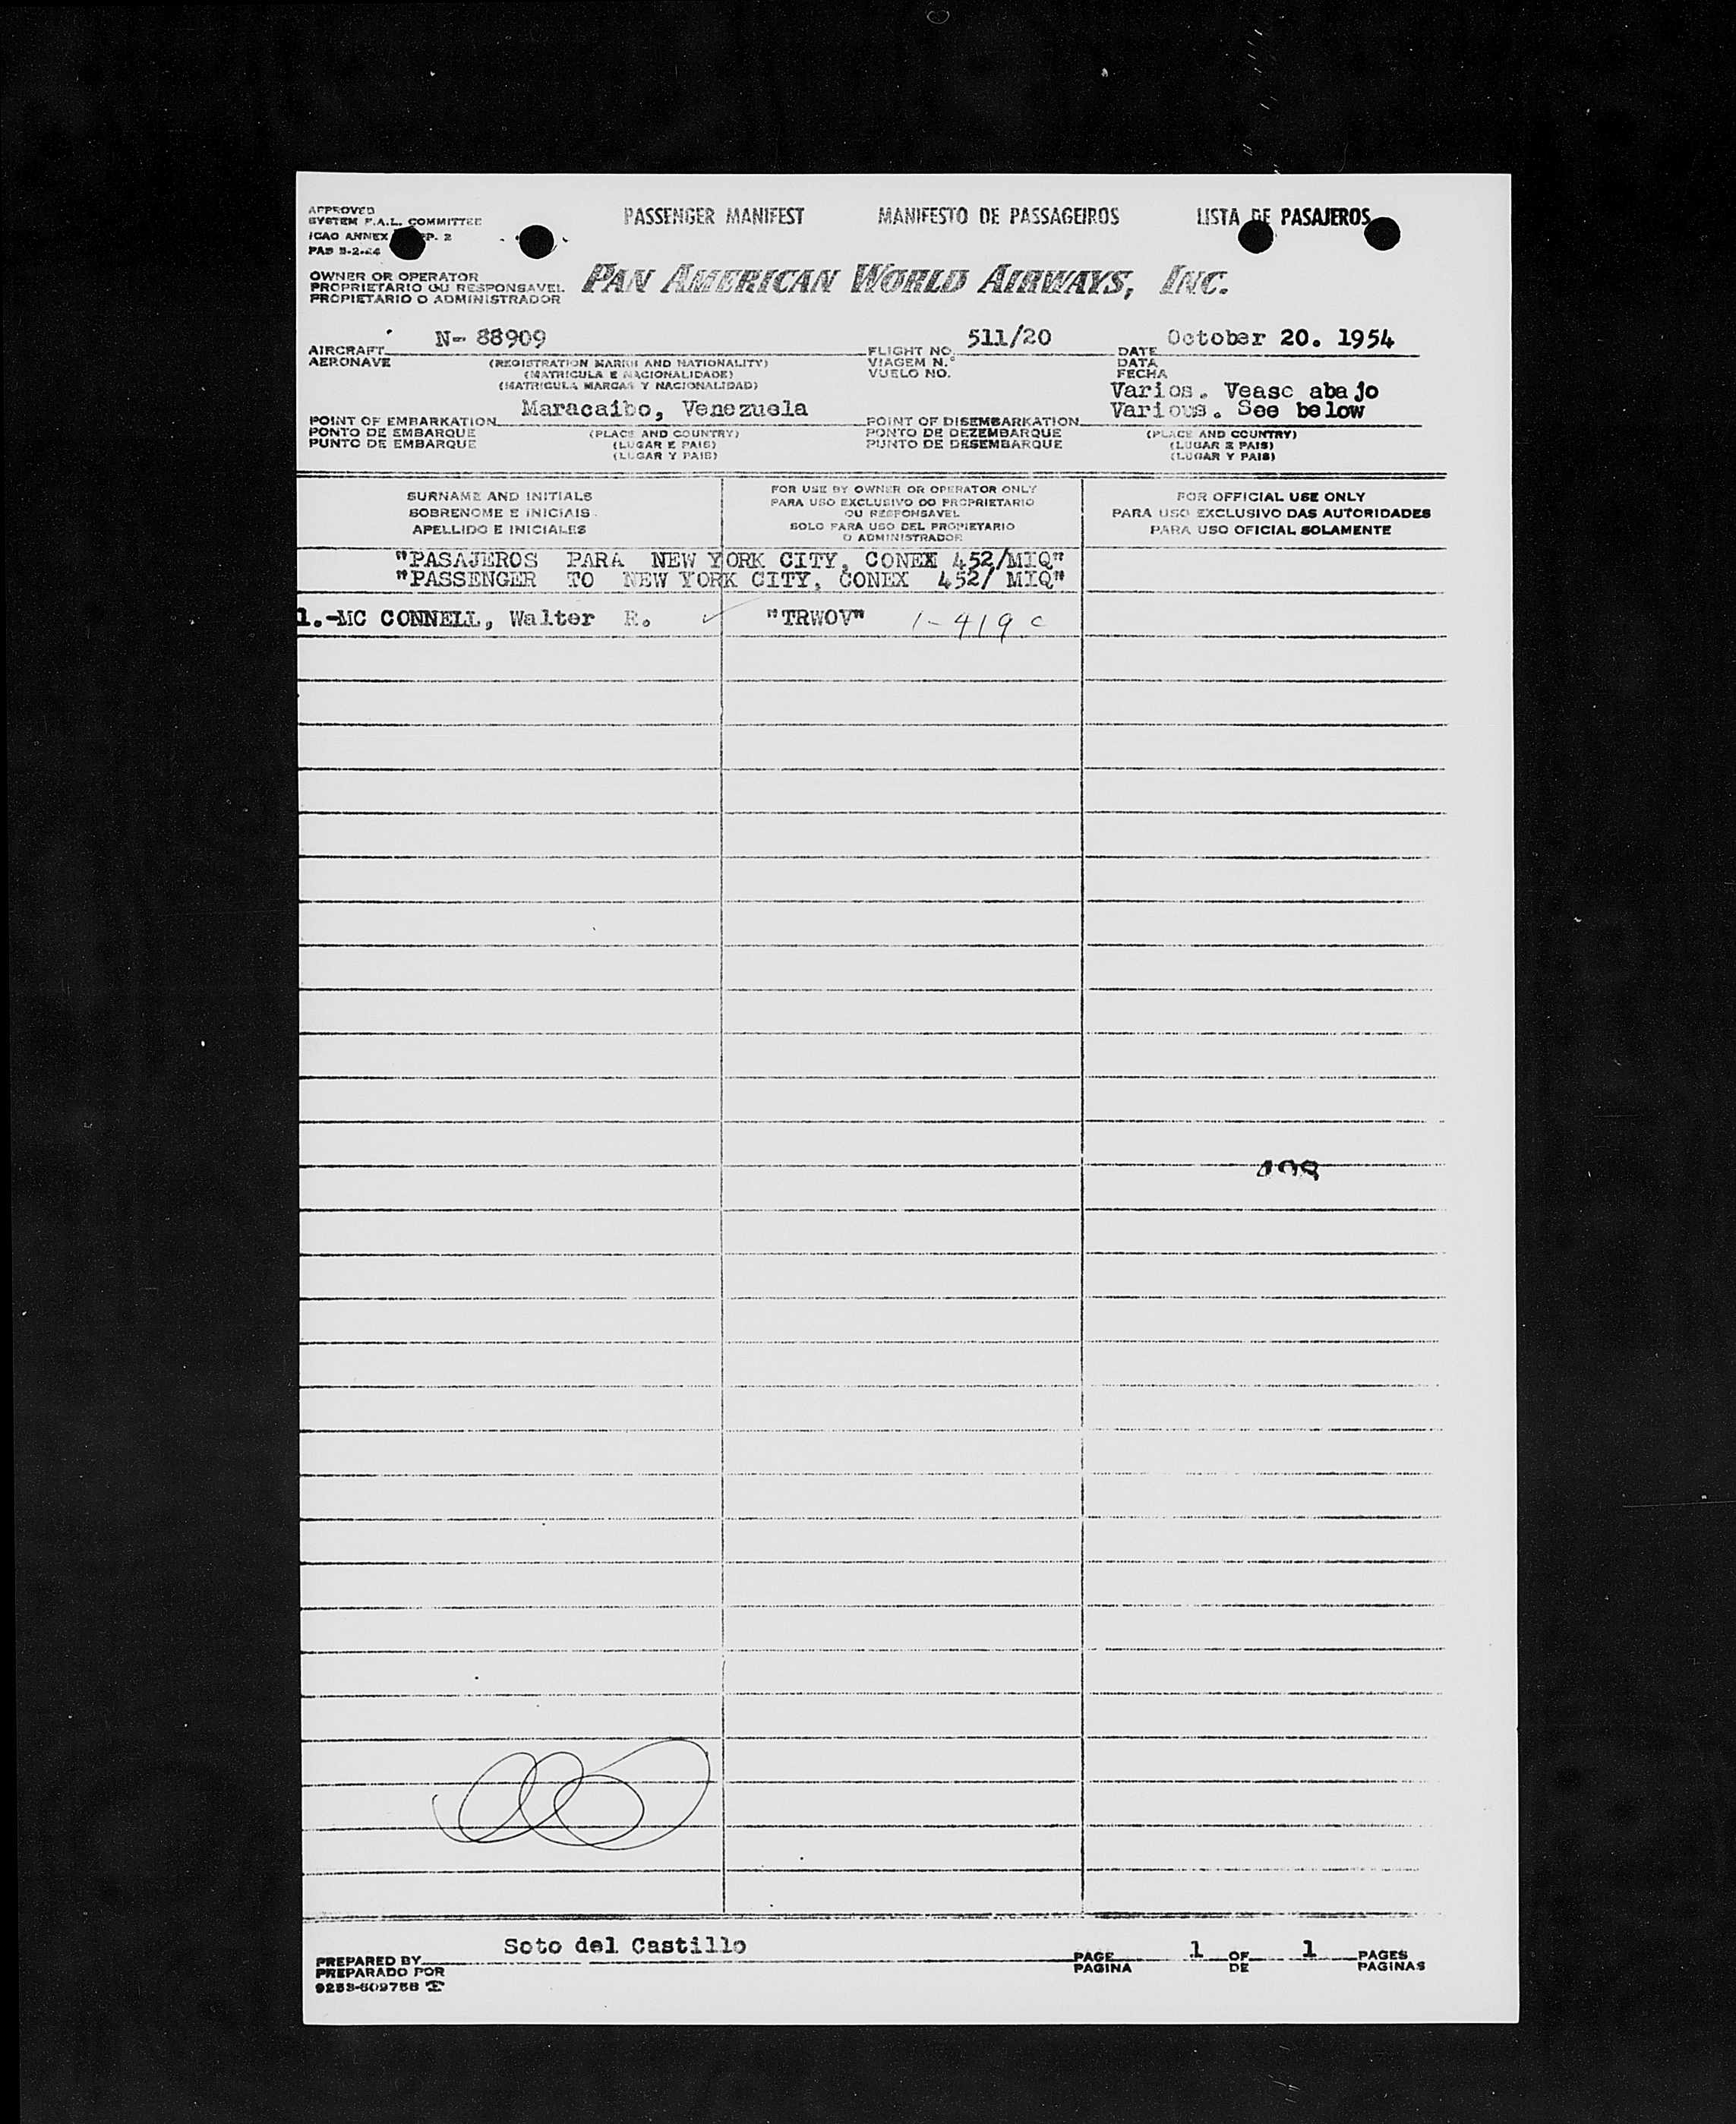 APPROVED
SYSTEM F.A.L. COMMITTEE
ICAO ANNEX PP. 2
PASSENGER MANIFEST MANIFESTO DE PASSAGEIROS LISTA DE PASAJEROS
OWNER OR OPERATOR
PROPRIETARIO OU RESPONSAVEL
PROPIETARIO O ADMINISTRADOR
PAN AMERICAN WORLD AIRWAYS, INC.
AIRCRAFT N- 88909 FLIGHT NO. 511/20 DATE October 20. 1954
AERONAVE (REGISTRATION MARKS AND NATIONALITY) VIAGEM N.° DATA
(MATRICULA E NACIONALIDADE) VUELO NO. FECHA
(MATRICULA MARCAS Y NACIONALIDAD)
Varios. Vease abajo
POINT OF EMBARKATION Maracaibo, Venezuela POINT OF DISEMBARKATION Various. See below
PONTO DE EMBARQUE (PLACE AND COUNTRY) PONTO DE DEZEMBARQUE (PLACE AND COUNTRY)
PUNTO DE EMBARQUE (LUGAR E PAIS) PUNTO DE DESEMBARQUE (LUGAR E PAIS)
(LUGAR Y PAIS) (LUGAR Y PAIS)
SURNAME AND INITIALS
SOBRENOME E INICIAIS
APELLIDO E INICIALES
FOR USE BY OWNER OR OPERATOR ONLY
PARA USO EXCLUSIVO DO PROPRIETARIO
OU RESPONSAVEL
SOLO PARA USO DEL PROPIETARIO
O ADMINISTRADOR
FOR OFFICIAL USE ONLY
PARA USO EXCLUSIVO DAS AUTORIDADES
PARA USO OFICIAL SOLAMENTE
"PASAJEROS PARA NEW YORK CITY, CONEX 452/MIQ"
"PASSENGER TO NEW YORK CITY, CONEX 452/ MIQ"
1.-MC CONNELL, Walter R. ✓ "TRWOV" 1-419 c
PREPARED BY Soto del Castillo PAGE 1 OF 1 PAGES
PREPARADO POR PAGINA DE PAGINAS